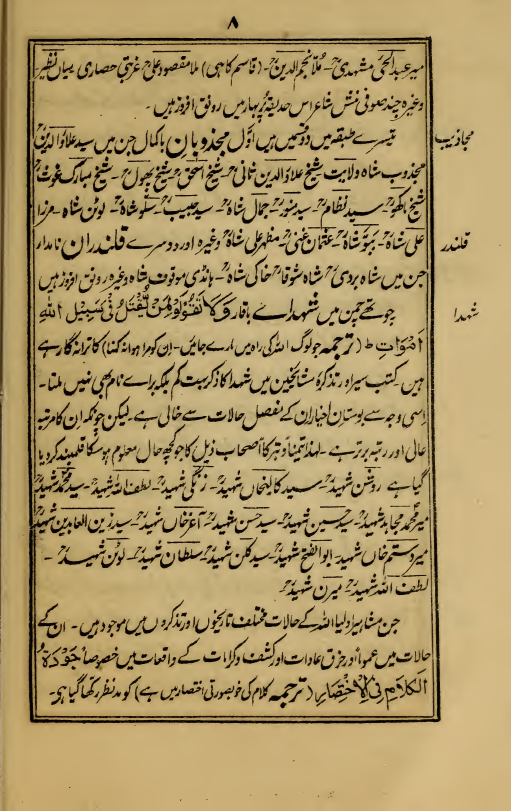 ۸
میر عبد الحی مشہدیؒ۔ ملا نجم الدینؒ۔ (قاسم کاہی) ملا مقصود علیؒ غربتی حصاری بیان نظیر۔
وغیرہ چند صوفی منش شاعر اس حدیقۂ پُر بہار میں رونق افروز ہیں۔
مجاذیب
تیسرے طبقہ میں دو قسمیں ہیں اوّل مجذوبان باکمال جن میں سید علاؤ الدینؒ
مجذوب شاہ ولایت شیخ علاؤ الدین ثانیؒ۔ شیخ اسحقؒ۔ شیخ پھولؒ۔ شیخ مبارک غوثؒ
شیخ لکھوؒ۔ سید نظامؒ۔ سید منورؒ۔ جمال شاہؒ۔ سید حبیبؒ۔ سلو شاہؒ۔ لوٹن شاہ۔ مرزا
قلندر
علی شاہؒ۔ ببو شاہؒ۔ عثمان غنیؒ۔ مظہر علی شاہؒ وغیرہ اور دوسرے قلندران نامدار
جن میں شاہ بردیؒ۔ شاہ شوقاؒ۔ خاکی شاہؒ۔ ہانڈی موقوف شاہ وغیرہ رونق افروز ہیں
شہدا
چوتھے چمن میں شہدائے باوقار وَلَا تَقُوْلُوْا لِمَنْ يُّقْتَلُ فِیْ سَبِيْلِ اللهِ
اَمْوَاتٌ ط (ترجمہ جو لوگ اللہ کی راہ میں مارے جائیں۔ ان کو مرا ہوا نہ کہنا) کا ترانہ گا رہے
ہیں۔ کتب سیر اور تذکرۂ مشائخین میں شہدا کا ذکر بہت کم بلکہ برائے نام بھی نہیں ملتا۔
اسی وجہ سے بوستانِ اخیار ان کے مفصل حالات سے خالی ہے۔ لیکن چونکہ ان کا مرتبہ
عالی اور رتبہ برتر ہے۔ لہذا تیمناً و تبرکاً اصحاب ذیل کا جو کچھ حال معلوم ہو سکا قلمبند کر دیا
گیا ہے روشن شہیدؒ۔ سید کالیخاں شہیدؒ۔ زنگی شہیدؒ۔ لطف اللہ شہیدؒ۔ سید محمد شہیدؒ
میر محمد مجاہد شہیدؒ۔ سید حسین شہیدؒ۔ سید حسن شہیدؒ۔ آغر خاں شہیدؒ۔ سید زین العابدین شہیدؒ
میر رستم خاں شہید۔ ابو الفتح شہیدؒ۔ سید کلن شہیدؒ۔ سلطان شہیدؒ۔ لوٹن شہیدؒ۔
لطف اللہ شہیدؒ۔ میرن شہیدؒ۔
جن مشاہیر اولیا اللہ کے حالات مختلف تاریخوں اور تذکروں میں موجود ہیں۔ ان کے
حالات میں عموماً اور خرق عادات اور کشف و کرامات کے واقعات میں خصوصاً جَوْدَۃُ
الْکَلَامِ فِی الْاِخْتِصَارِ (ترجمہ کلام کی خوبصورتی اختصار میں ہے) کو مد نظر رکھا گیا ہی۔